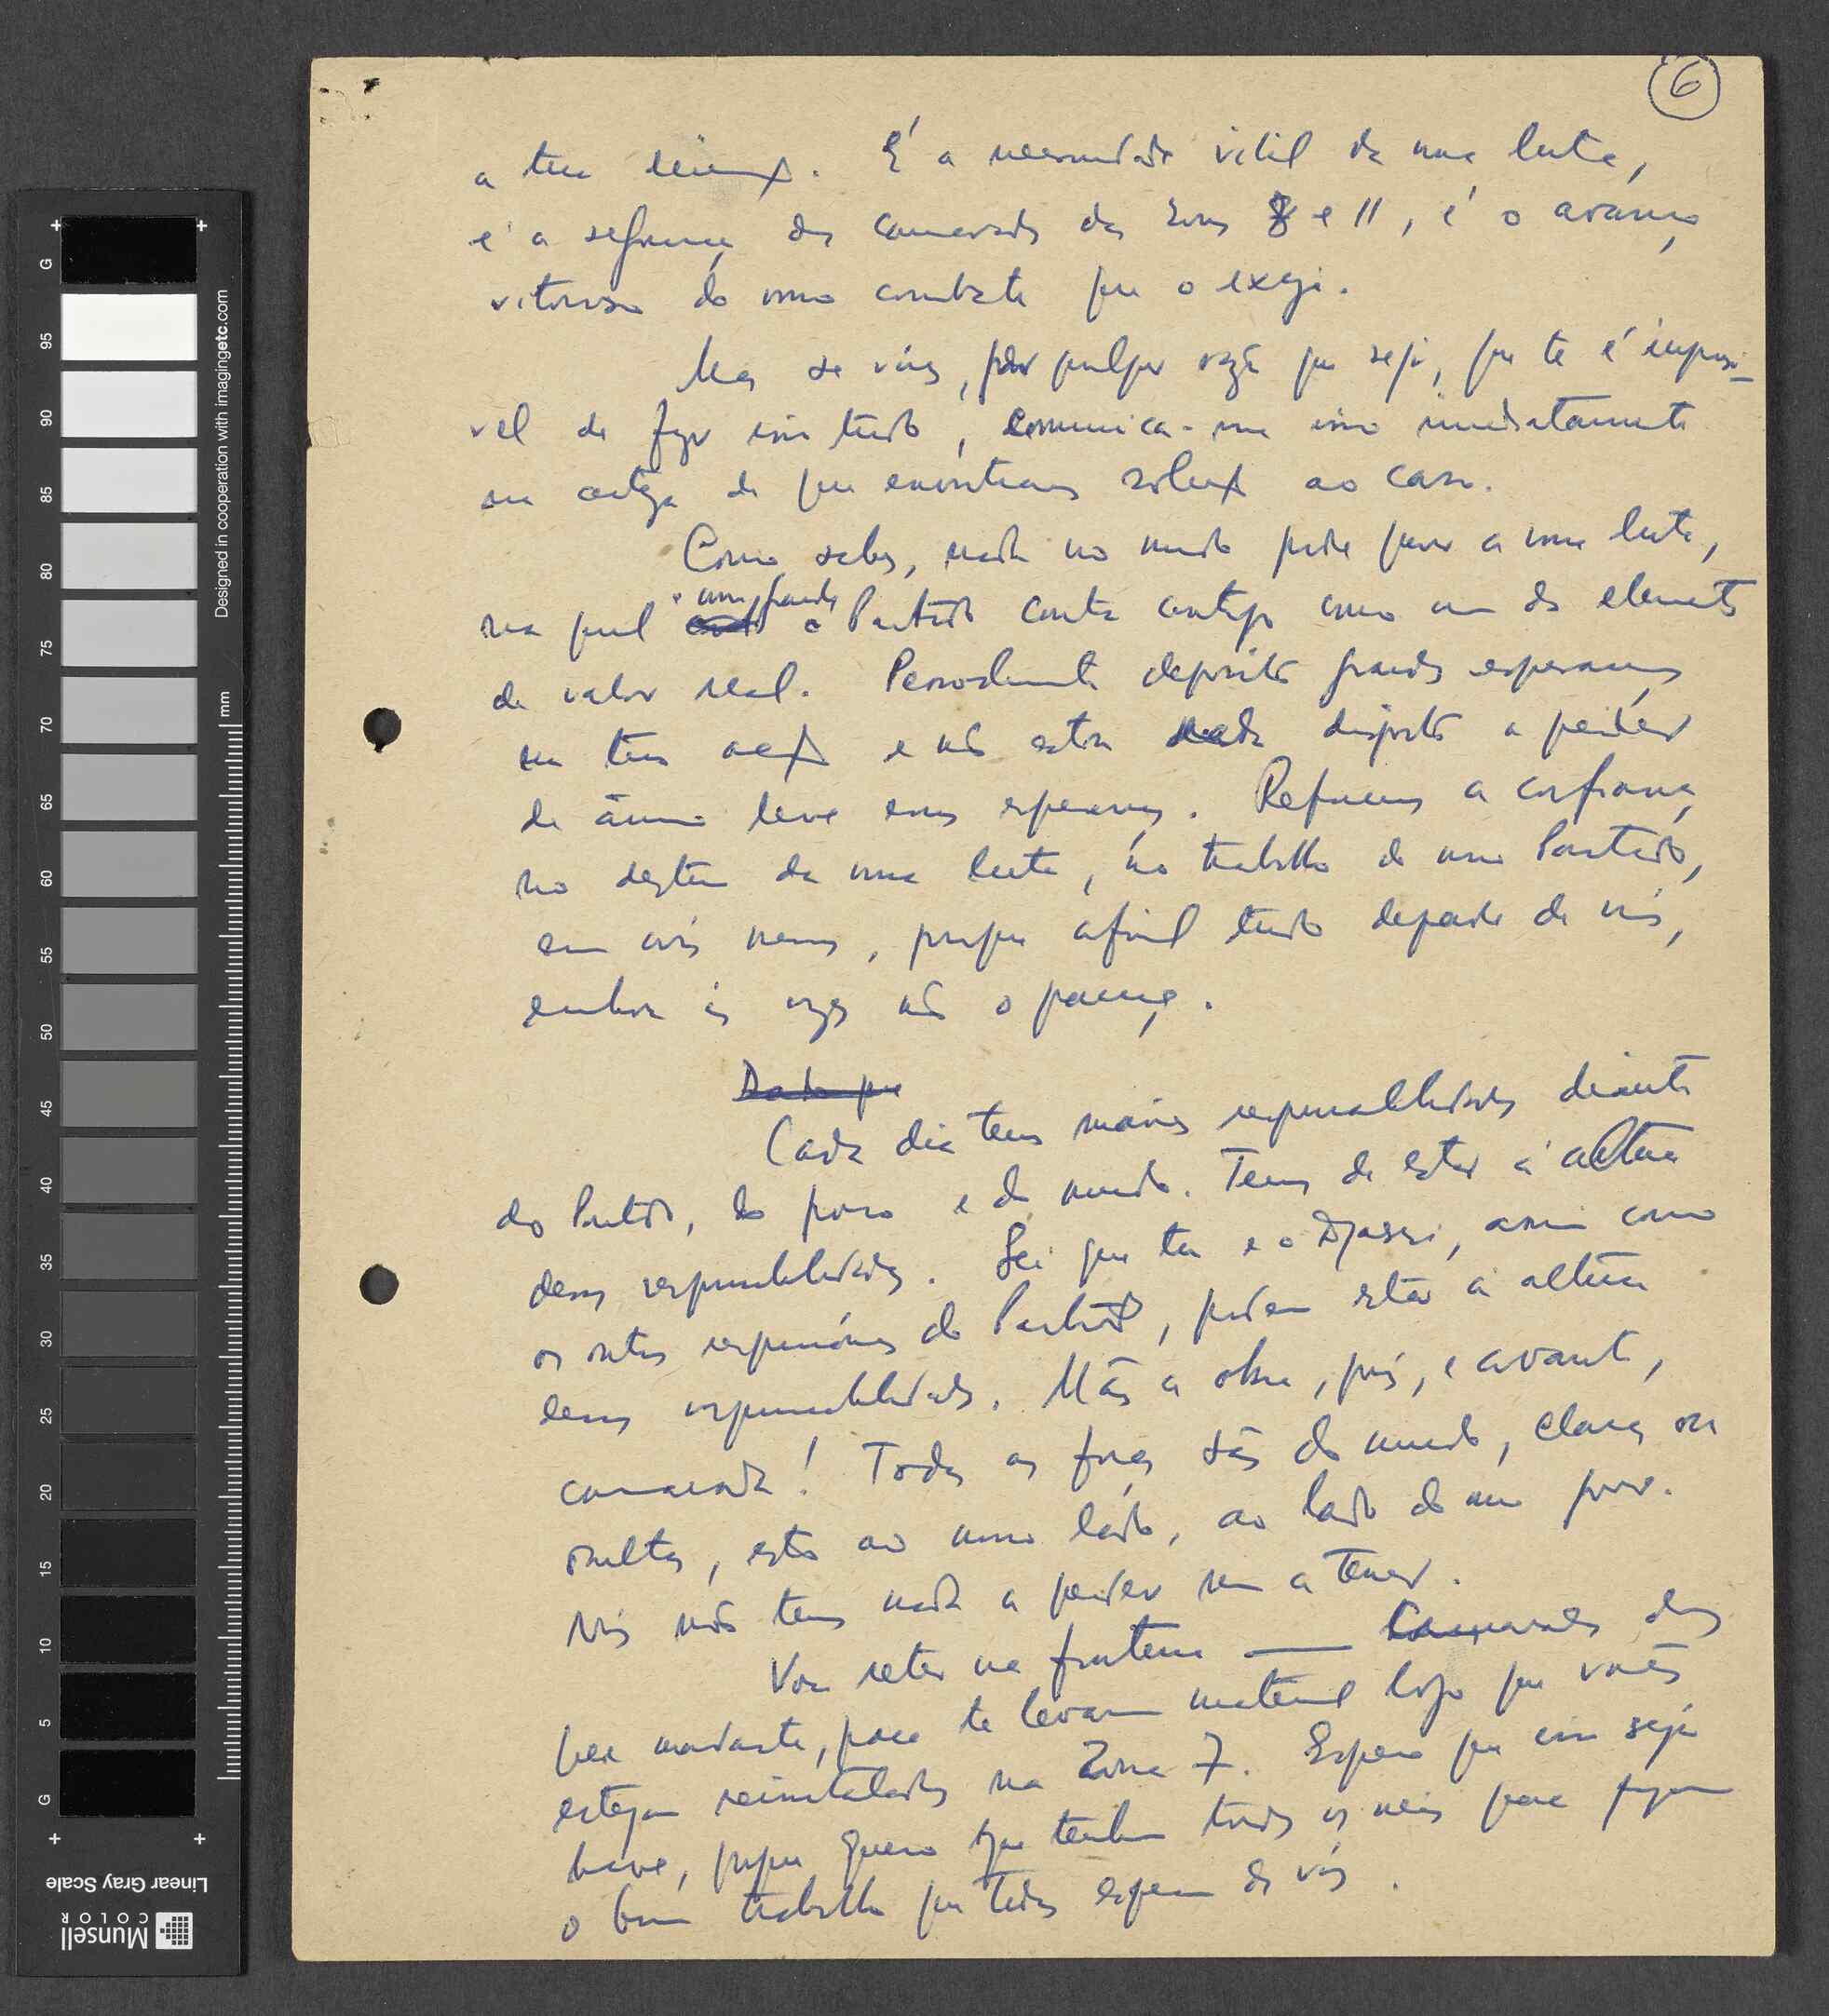 6
a tua reünião. É a necessidade vital da nossa luta,
é a segurança dos camaradas das zonas 8 e 11, é o avanço
vitorioso do nosso combate que o exige.
Mas se vires, por qualquer razão que seja, que te é impossí-
vel de fazer isso tudo, comunica-me isso imediatamente
na certeza de que encontramos solução ao caso.
Como sabes, nada no mundo pode parar a nossa luta,
na qual o nosso grande Partido conta contigo como um dos elementos
de valor real. Pessoalmente deposito grandes esperanças
na tua acção e não estou nada disposto a perder
de ânimo leve essas esperanças. Reforcemos a confiança
no destino da nossa luta, no trabalho do nosso Partido,
em nós mesmos, porque afinal tudo depende de nós,
embora às vezes não o pareça.
Cada dia temos maiores responsabilidades diante
do Partido, do povo e do mundo. Temos de estar à altura
dessas responsabilidades. Sei que tu e o Djassi, assim como
os outros responsáveis do Partido, podem estar à altura
dessas responsabilidades. Mãos à obra, pois, e avante,
camarada! Todas as forças sãs do mundo, claras ou
ocultas, estão ao nosso lado, ao lado do nosso povo.
Nós não temos nada a perder nem a temer.
Vou reter na fronteira — Camaradas dos
que mandaste, para te levarem material logo que vocês
estejam reinstalados na Zona 7. Espero que isso seja
breve, porque quero que tenham todos os meios para façam
o bom trabalho que todos esperam de vós.
Designed in cooperation with imagingetc.com
mm
G
95
90
85
80
75
70
65
60
55
50
45
40
35
30
25
20
15
10
5
G
Linear Gray Scale
Munsell
COLOR